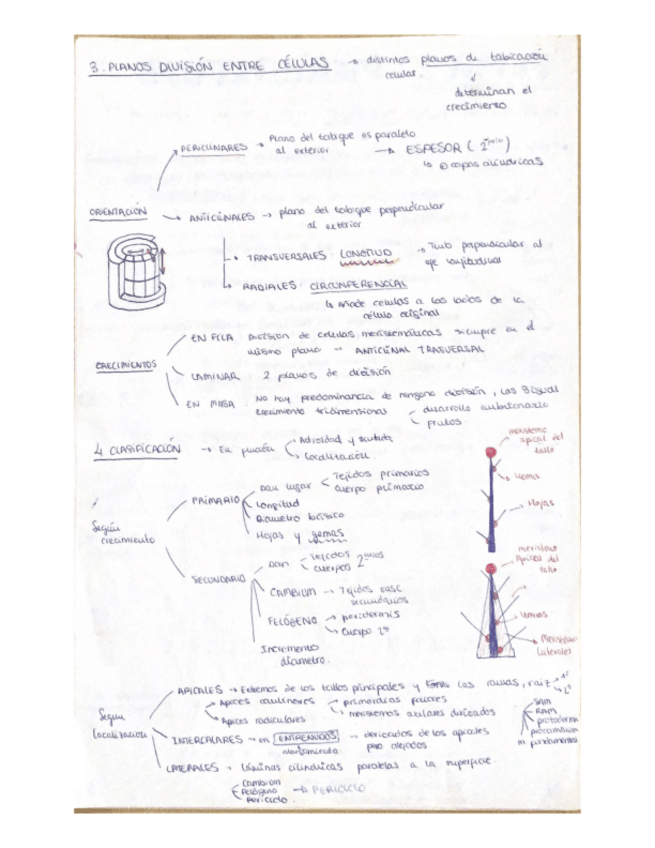 3. PLANOS DIVISIÓN ENTRE CÉLULAS → distintos planos de tabicación
celular.
determinan el
crecimiento
PERICLINARES → Plano del tabique es paralelo
al exterior → ESPESOR (2
↳ capas cilíndricas
ORIENTACIÓN
ANTICLINALES → plano del tabique perpendicular
al exterior
• TRANSVERSALES: LONGITUD → perpendicular al
eje longitudinal
• RADIALES: CIRCUNFERENCIAL
↳ Añade células a los lados de la
célula original
CRECIMIENTOS
EN FILA: División de células meristemáticas siempre en el
mismo plano → ANTICLINAL TRASVERSAL
LAMINAR: 2 planos de división
EN MASA: No hay predominancia de ninguna división, las 3 igual
crecimiento tridimensional
desarrollo embrionario
frutos.
4 CLASIFICACIÓN → En función
Actividad y
Localización.
meristemo
apical del
tallo
Yema
Hojas
Según
crecimiento
PRIMARIO
Dan lugar
Tejidos primarios
Cuerpo primario
Longitud
Diámetro
Hojas y yemas
SECUNDARIO
Dan
Tejidos
cuerpos 2arios
CAMBIUM → Tejidos vasc.
secundarios
FELÓGENO → peridermis
Cuerpo 2º
Incremento
diámetro.
meristemo
Apical del
tallo
Yemas
Meristemo
Laterales
Según
localización
APICALES → Extremos de los tallos principales y las ramas, raiz
1º
2º
Apices caulinares
primordios foliares
meristemos axilares derivados
Apices radiculares
SAM
RAM
protodermis
procambium
m fundamental
INTERCALARES → en ENTRENUDOS → derivados de los apicales
pero alejados
LATERALES → láminas cilíndricas paralelas a la superficie.
Cambium
Felógeno
Periciclo.
→ PERICICLO